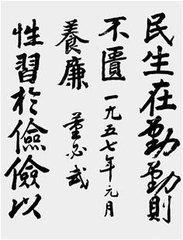 民生在勤勤則
不匱一九五七年元月
養廉 董必武
性習於儉儉以